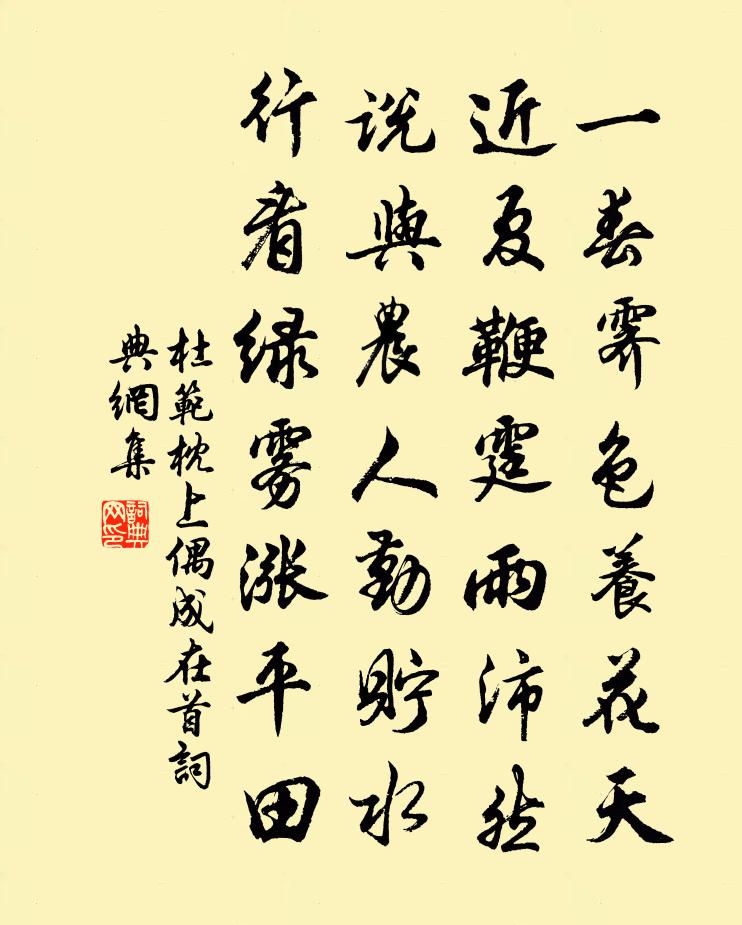 一春霽色養花天
近夏鞭霆雨沛然
説與農人勤貯水
行看绿雾漲平田
杜範枕上偶成在首詞
典網集
詞典網印